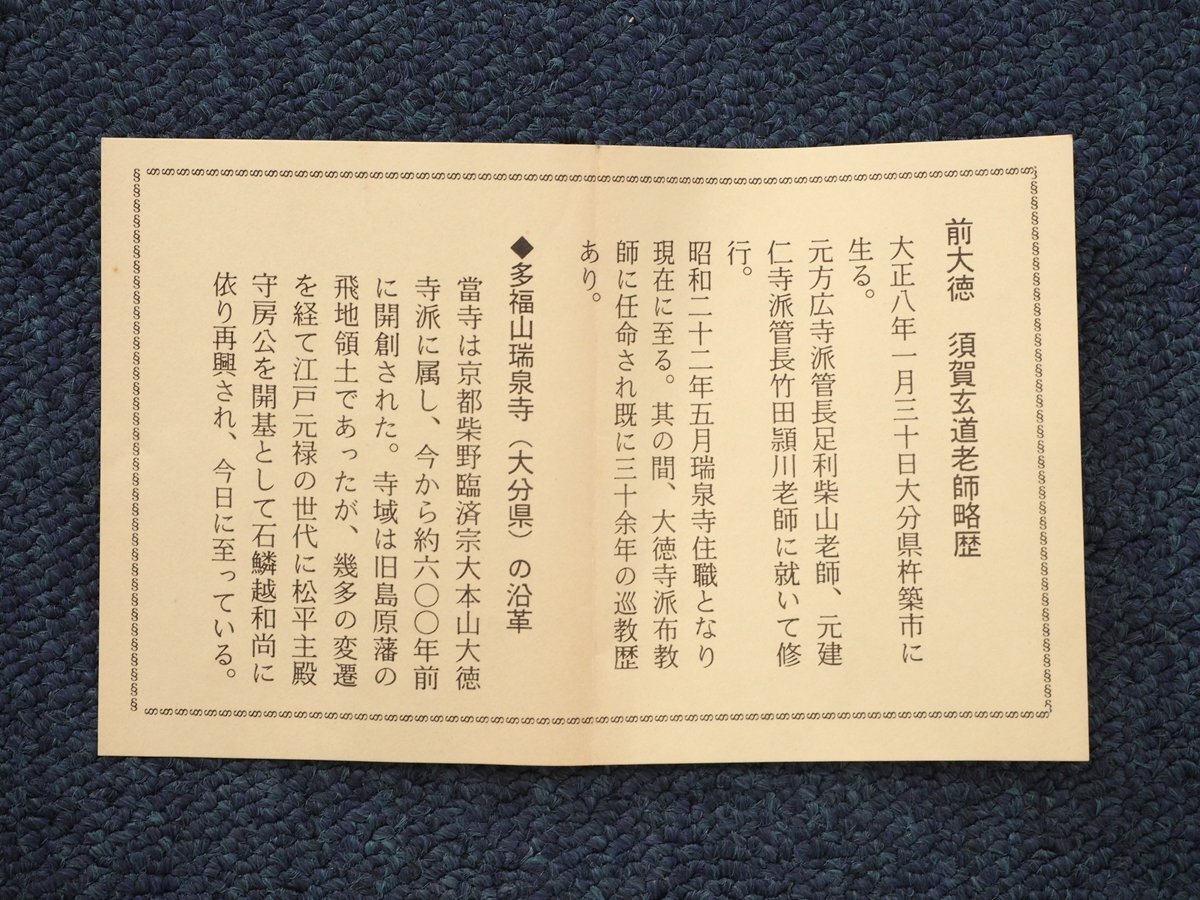 前大徳　須賀玄道老師略歴
大正八年一月三十日大分県杵築市に
生る。
元方広寺派管長足利柴山老師、元建
仁寺派管長竹田頴川老師に就いて修
行。
昭和二十二年五月瑞泉寺住職となり
現在に至る。其の間、大徳寺派布教
師に任命され既に三十余年の巡教歴
あり。
◆多福山瑞泉寺（大分県）の沿革
當寺は京都柴野臨済宗大本山大徳
寺派に属し、今から約六〇〇年前
に開創された。寺域は旧島原藩の
飛地領土であったが、幾多の変遷
を経て江戸元禄の世代に松平主殿
守房公を開基として石鱗越和尚に
依り再興され、今日に至っている。